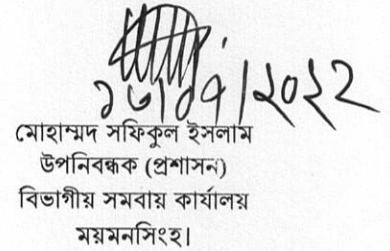 ১৩/০৭/২০২২
মোহাম্মদ সফিকুল ইসলাম
উপনিবন্ধক (প্রশাসন)
বিভাগীয় সমবায় কার্যালয়
ময়মনসিংহ।